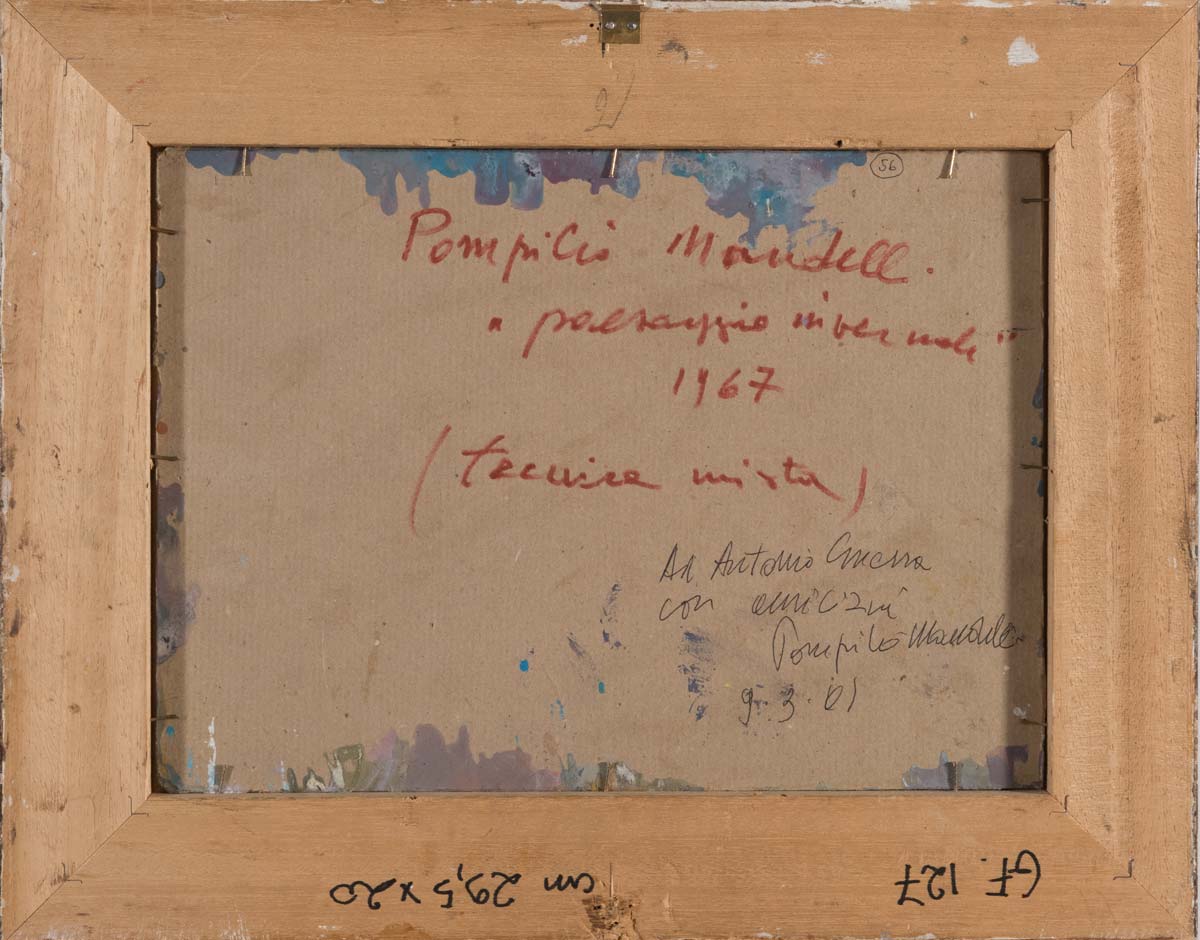 56
Pompilio Mandelli
"paesaggio invernale"
1967
(tecnica mista)
Ad Antonio Guerra
con amicizia
Pompilio Mandelli
9.3.01
GF. 127
cm 29,5 x 20